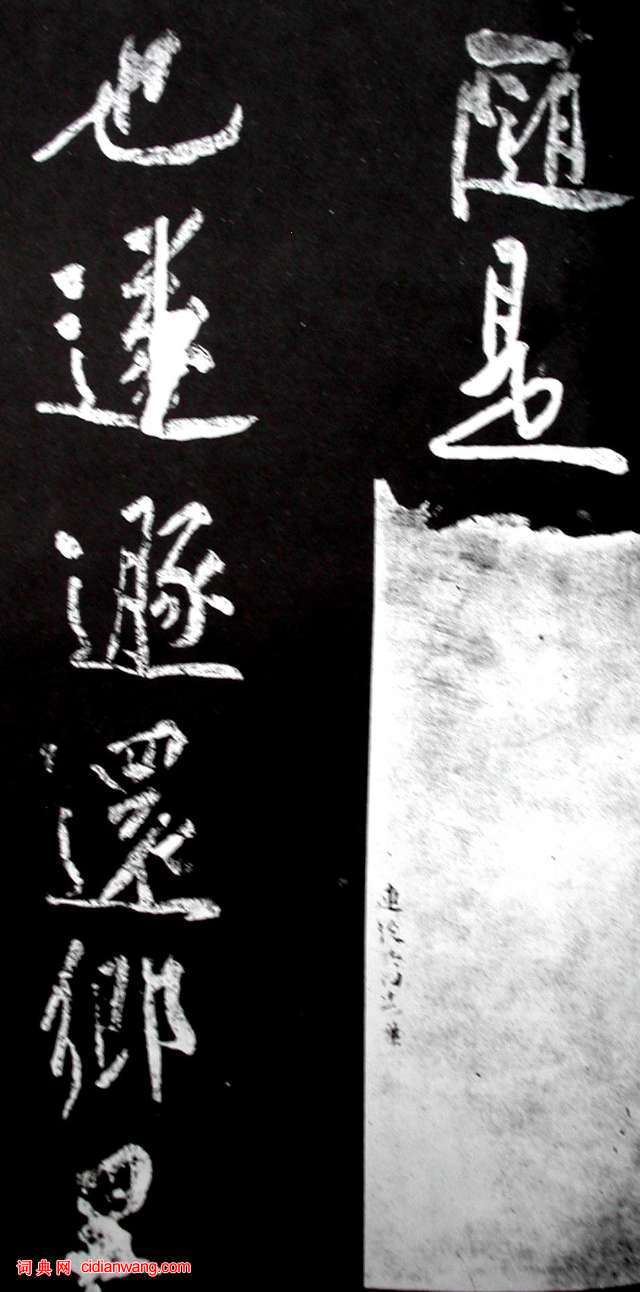 隨是
也遂遯還鄉里
词典网 cidianwang.com